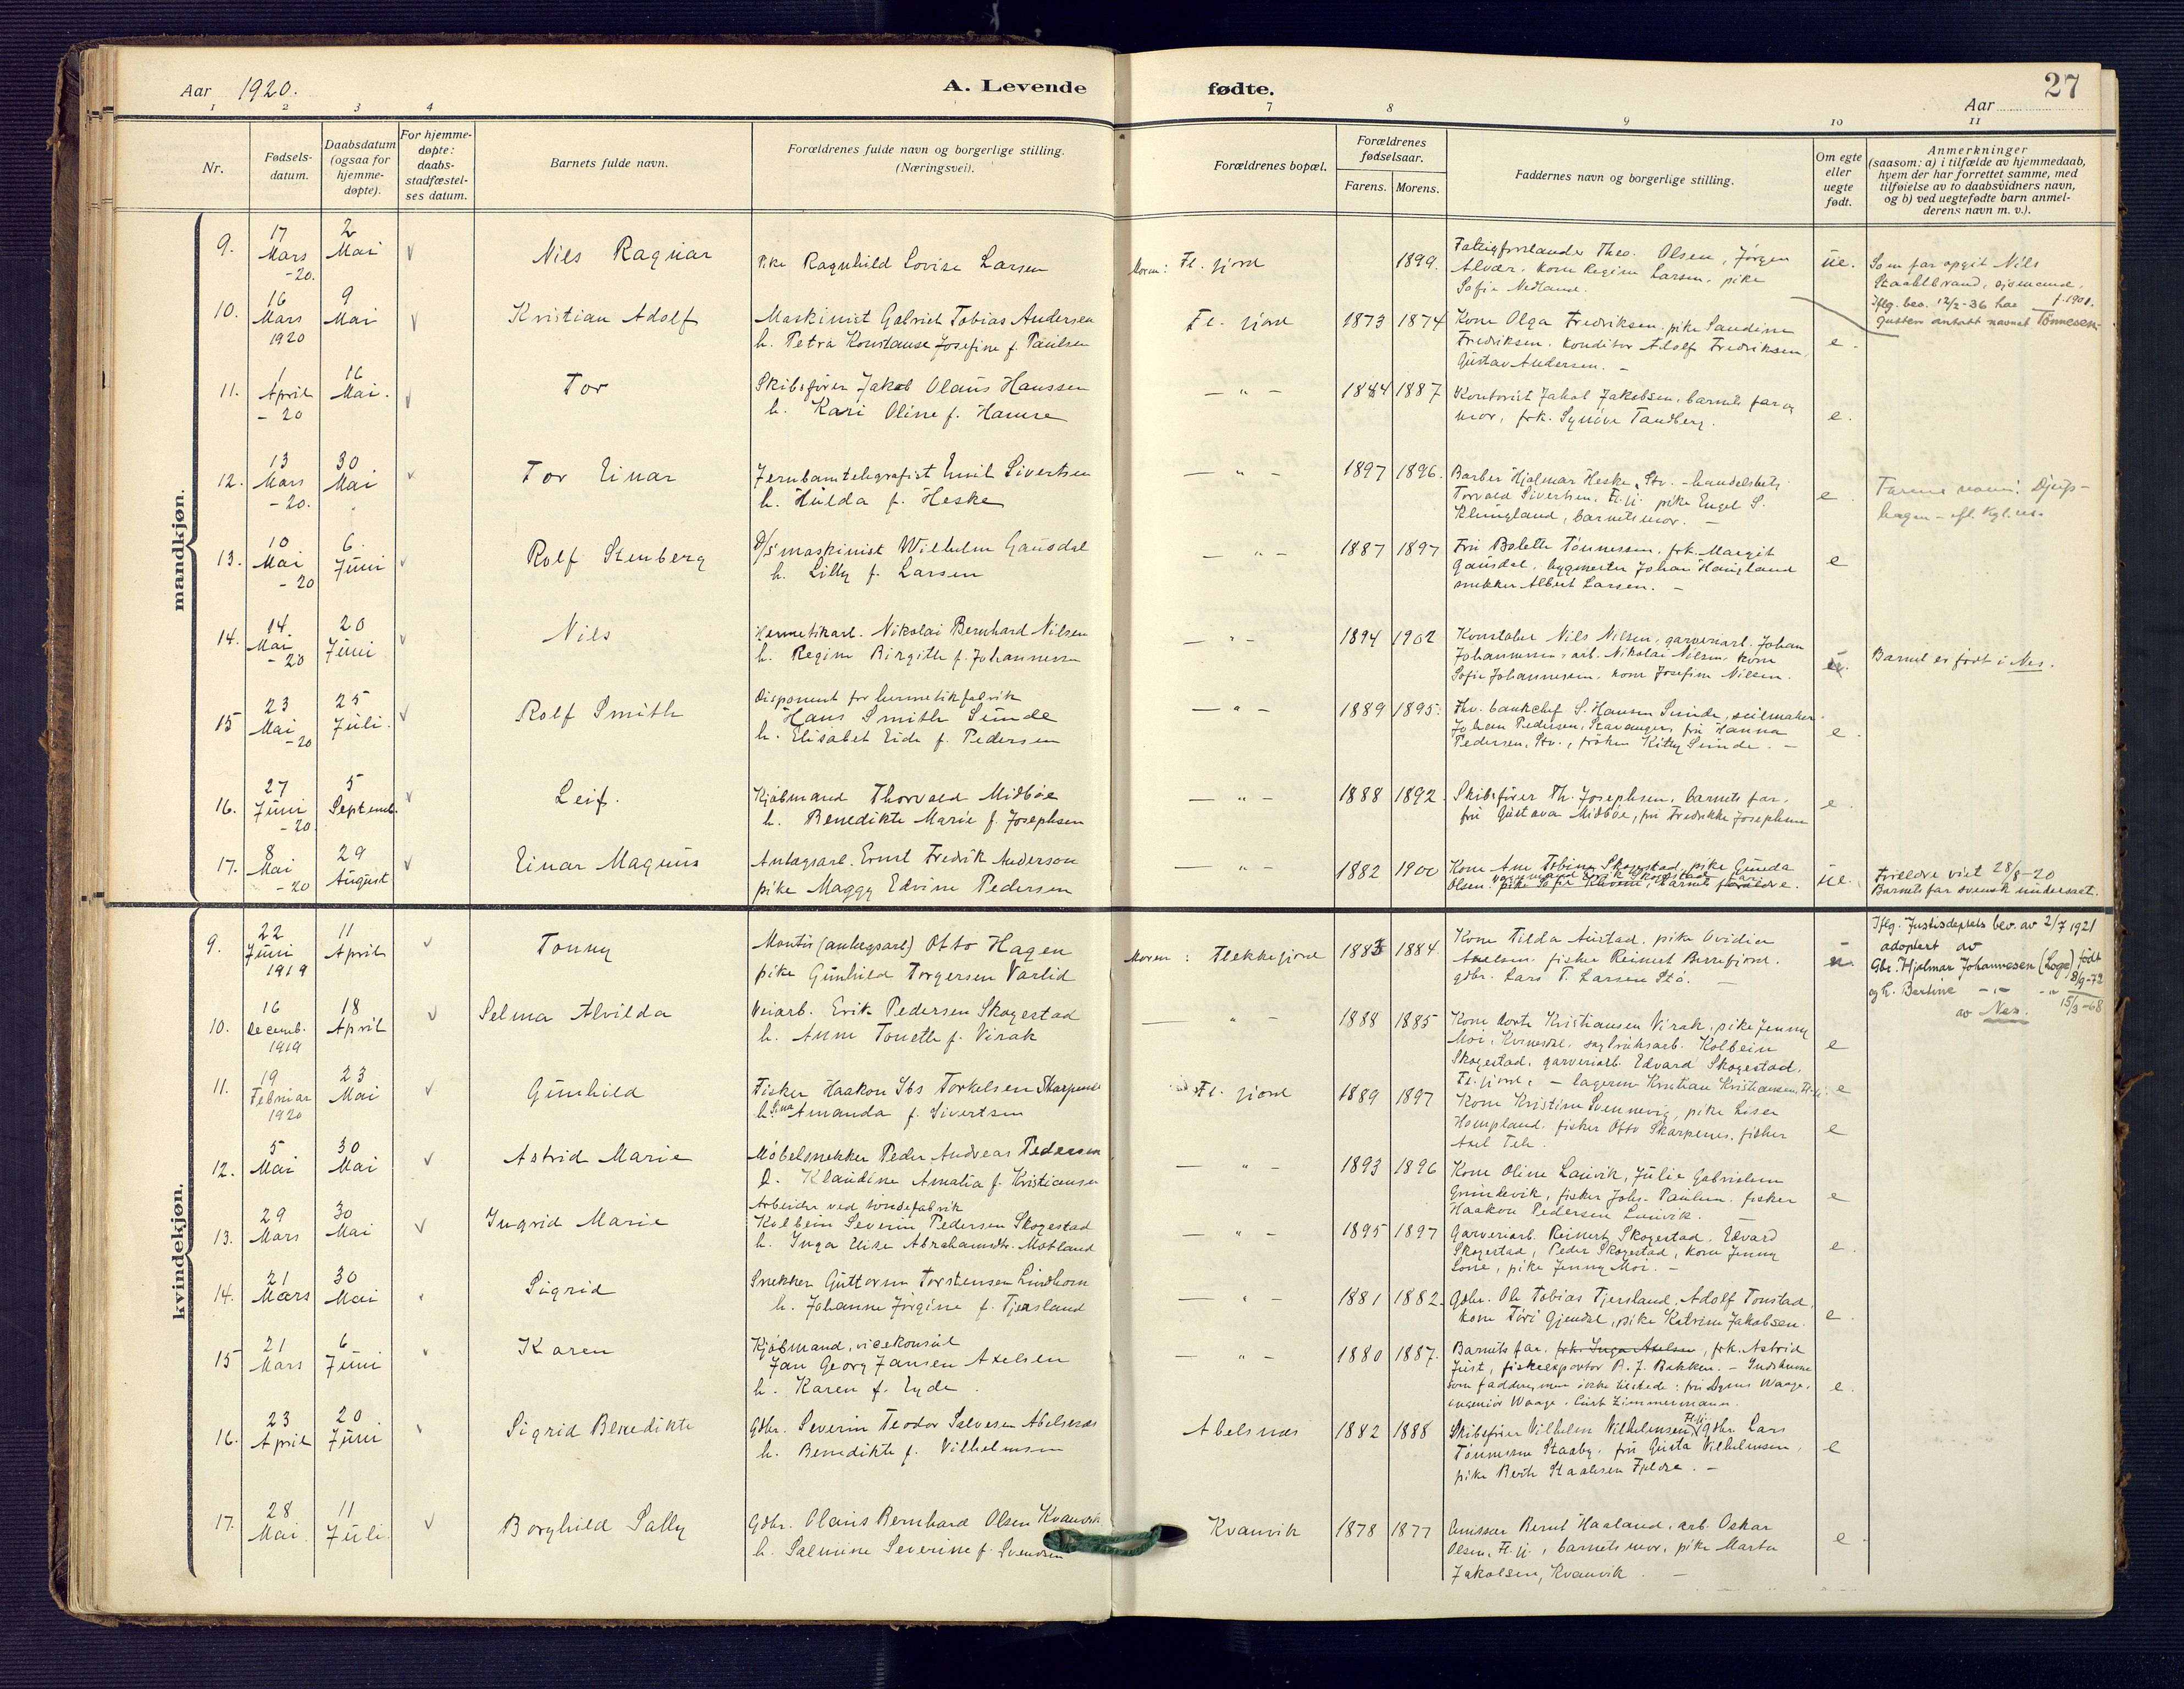 Aar 1920.
A. Levende fødte.
27
Aar
1 2 3 4 7 8 9 10 11
Nr.
Fødsels-
datum.
Daabsdatum
(ogsaa for
hjemme-
døpte).
For hjemme-
døpte:
daabs-
stadfæstel-
ses datum.
Barnets fulde navn.
Forældrenes fulde navn og borgerlige stilling.
(Næringsvei).
Forældrenes bopæl.
Forældrenes
fødselsaar.
Farens. Morens.
Faddernes navn og borgerlige stilling.
Om egte
eller
uegte
født.
Anmerkninger
(saasom: a) i tilfælde av hjemmedaab,
hvem der har forrettet samme, med
tilføielse av to daabsvidners navn,
og b) ved uegtefødte barn anmel-
derens navn m. v.).
mandkjøn.
9. 17 Mars -20. 2 Mai Nils Ragnar
Pike Ragnhild Lovise Larsen
Moren: Fl. fjord 1899.
Theo. Olsen, Jørgen
Alvær, kone Regine Larsen, pike
Sofie Nedland.
ue.
Som far opgit Nils
Staalbrand, sjømand,
f. 1901.
Iflg. bev. 12/2-36 har
gutten antatt navnet Tønnesen
10. 16 Mars 1920 9 Mai Kristian Adolf
Maskinist Gabriel Tobias Andersen
h. Petra Konstanse Josefine f. Paulsen
Fl. fjord 1873 1874
Kone Olga Fredriksen, pike Sandine
Fredriksen, konditor Adolf Fredriksen,
Gustav Andersen. -
e.
11. 1 April -20 16 Mai. Tor
Skibsfører Jakob Olaus Hanssen
h. Kari Oline f. Hamre
— " — 1884 1887
Kontorist Jakob Jakobsen, barnets far og
mor, frk. Synøve Tandberg.
e.
12. 13 Mars -20. 30 Mai Tor Einar
Jernbanetelegrafist Emil Sivertsen
h. Hulda f. Heske
— " — 1897 1896.
Barber Hjalmar Heske, Stv. - handelsbetj.
Torvald Sivertsen, Fl.fj. pike Engel S.
Klungland, barnets mor. -
e.
Farens navn: Djup-
hagen
13. 10 Mai -20 6. Juni Rolf Stenberg
D/S maskinist Wilhelm Gausdal
h. Lilly f. Larsen
— " — 1887 1897
Fru Bolette Tønnessen, frk. Margit
Gausdal, bygmester Johan Haugland
snekker Albert Larsen. -
e
14. 14 Mai -20 20 Juni Nils
Hermetikarb. Nikolai Bernhard Nilsen
h. Regine Birgithe f. Johannessen
— " — 1894 1902
Konstabel Nils Nilsen, garveriarb. Johan
Johannessen, arb. Nikolai Nilsen, kone
Sofie Johannessen, kone Josefine Nilsen.
Barnet er født i Nes.
15 23 Mai -20 25 Juli. Rolf Smith
Disponent for hermetikfabrik
Hans Smith Sunde
h. Elisabet Eide f. Pedersen
— " — 1889 1895.
Fhv. bankchef S. Hansen Sunde, seilmaker
Johan Pedersen, Stavanger, fru Hanna
Pedersen, Stv., frøken Kitty Sunde. -
e.
16. 27 Juni -20 5 Septemb. Leif.
Kjøbmand Thorvald Midbøe
h. Benedikte Marie f. Josephsen
— " — 1888 1892.
Skibsfører Th. Josephsen, barnets far,
fru Gustava Midbøe, fru Fredrikke Josephsen
e.
17. 8 Mai -20 29 August Einar Magnus
Anlægsarb. Ernst Fredrik Anderson
pike Maggy Edvine Pedersen
— " — 1882 1900
Kone Ane Tobine Skogestad, pike Gunda
Olsen, pike Sofie Klavene, barnets forældre.
ue.
Forældre viet 28/8-20
Barnets far svensk undersaat.
kvindekjøn.
9. 22 Juni 1919 11 April Tonny
Montør (anlægsarb) Otto Hagen
pike Gunhild Torgersen Varlid
Moren: Flekkefjord 1883 1884.
Kone Tilda Austad, pike Ovidie
Axelsen, fisker Reinert Berrefjord,
gdbr. Lars T. Larsen Stø. -
u.
Iflg. Justisdeptets bev. av 2/7 1921
adoptert av
Gbr. Hjalmar Johannesen (Loge) født
8/9-72
og h. Bertine -"- -" 15/3-68
av Nes.
10. 16 Decemb. 1919 18 April Selma Alvilda
Veiarb. Erik Pedersen Skogestad
h. Anne Tonette f. Virak
— " — 1888 1885
Kone Dorte Kristiansen Virak, pike Jenny
Moi, Kvinesdal, sagbruksarb. Kolbein
Skogestad, garveriarb. Edvard Skogestad,
Fl.fjord, - lagerm. Kristian Kristiansen, Fl.fj.
e
11. 19 Februar 1920 23 Mai Gunhild
Fisker Haakon Ibs Torkelsen Skarpenes
h. Sina Amanda f. Sivertsen
Fl. fjord 1889 1897
Kone Kristine Svennevig, pike Lisa
Hompland, fisker Otto Skarpenes, fisker
Axel
e
12. 5 Mai 30 Mai Astrid Marie
Møbelsnekker Peder Andreas Pedersen
h. Klaudine Amalia f. Kristiansen
— " — 1893 1896
Kone Oline Lauvik, Julie Gabrielsen
Grindevik, fisker Johs. Paulsen, fisker
Haakon Pedersen Launvik.
e
13. 29 Mars 30 Mai Ingrid Marie
Arbeider ved tøndefabrik
Kolbein Severin Pedersen Skogestad
h. Inga Elise Abrahamsdtr. Motland
— " — 1895 1897
Garveriarb. Reinert Skogestad, Edvard
Skogestad, Peder Skogestad, kone Jenny
Lone, pike Jenny Moi. -
e.
14. 21 Mars 30 Mai Sigrid
Snekker Guttorm Torstensen Lindhom
h. Johanne Jørgine f. Tjersland
— " — 1881 1882.
Gdbr. Ole Tobias Tjersland, Adolf Tonstad,
kone Tori Gjendal, pike Katrine Jakobsen.
e.
15 21 Mars 6 Juni Karen
Kjøbmand, vicekonsul
Jan Georg Jansen Axelsen
h. Karen f. Eyde.
— " — 1880 1887.
Barnets far. frk. Inga Axelsen, frk. Astrid
Just, fiskeexportør B. J. Bakken. - Indskrevne
som faddere, men ikke tilstede: fru Agnes Waage,
ingeniør Waage, Curt Zimmermann.
e.
16. 23 April 20 Juni Sigrid Benedikte
Gdbr. Severin Teodor Salvesen Abelsnæs
h. Benedikte f. Vilhelmsen
Abelsnæs 1882 1888
Skibsfører Vilhelm Vilhelmsen, Fl.fj. gdbr. Lars
Tønnessen Staaby, fru Gusta Vilhelmsen,
pike Berthe Staalesen Fjeldsæ. -
e
17. 28 Mai 11 Juli Borghild Sally
Gdbr. Olaus Bernhard Olsen Kvanvik
h. Salmine Severine f. Svendsen
Kvanvik 1878 1877
Emissær Bernt Haaland, arb. Oskar
Olsen, Fl.fj., barnets mor, pike Marta
Jakobsen, Kvanvik. -
e.